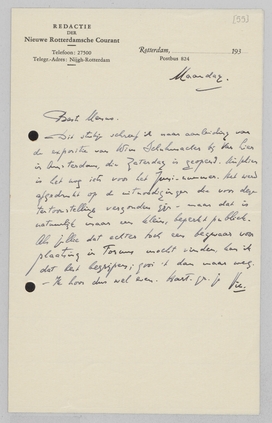 [93]
REDACTIE
DER
Nieuwe Rotterdamsche Courant
Telefoon: 27300
Telegr.-Adres: Nijgh-Rotterdam
Rotterdam, 193
Postbus 824
Maandag.
Beste Menno.
Dit stukje schreef ik naar aanleiding van
de expositie van Wim Schuhmacher bij Van Lier
in Amsterdam, die Zaterdag is geopend. Misschien
is het nog iets voor het Juni-nummer. Het werd
afgedrukt op de uitnoodigingen die voor deze
tentoonstelling verzonden zijn - maar dat is
natuurlijk maar een klein, beperkt publiek.
Als jullie dat echter toch een bezwaar voor
plaatsing in Forum mocht vinden, kan ik
dat best begrijpen; gooi 't dan maar weg.
- Ik hoor dus wel even. Hart. gr. je Vic.